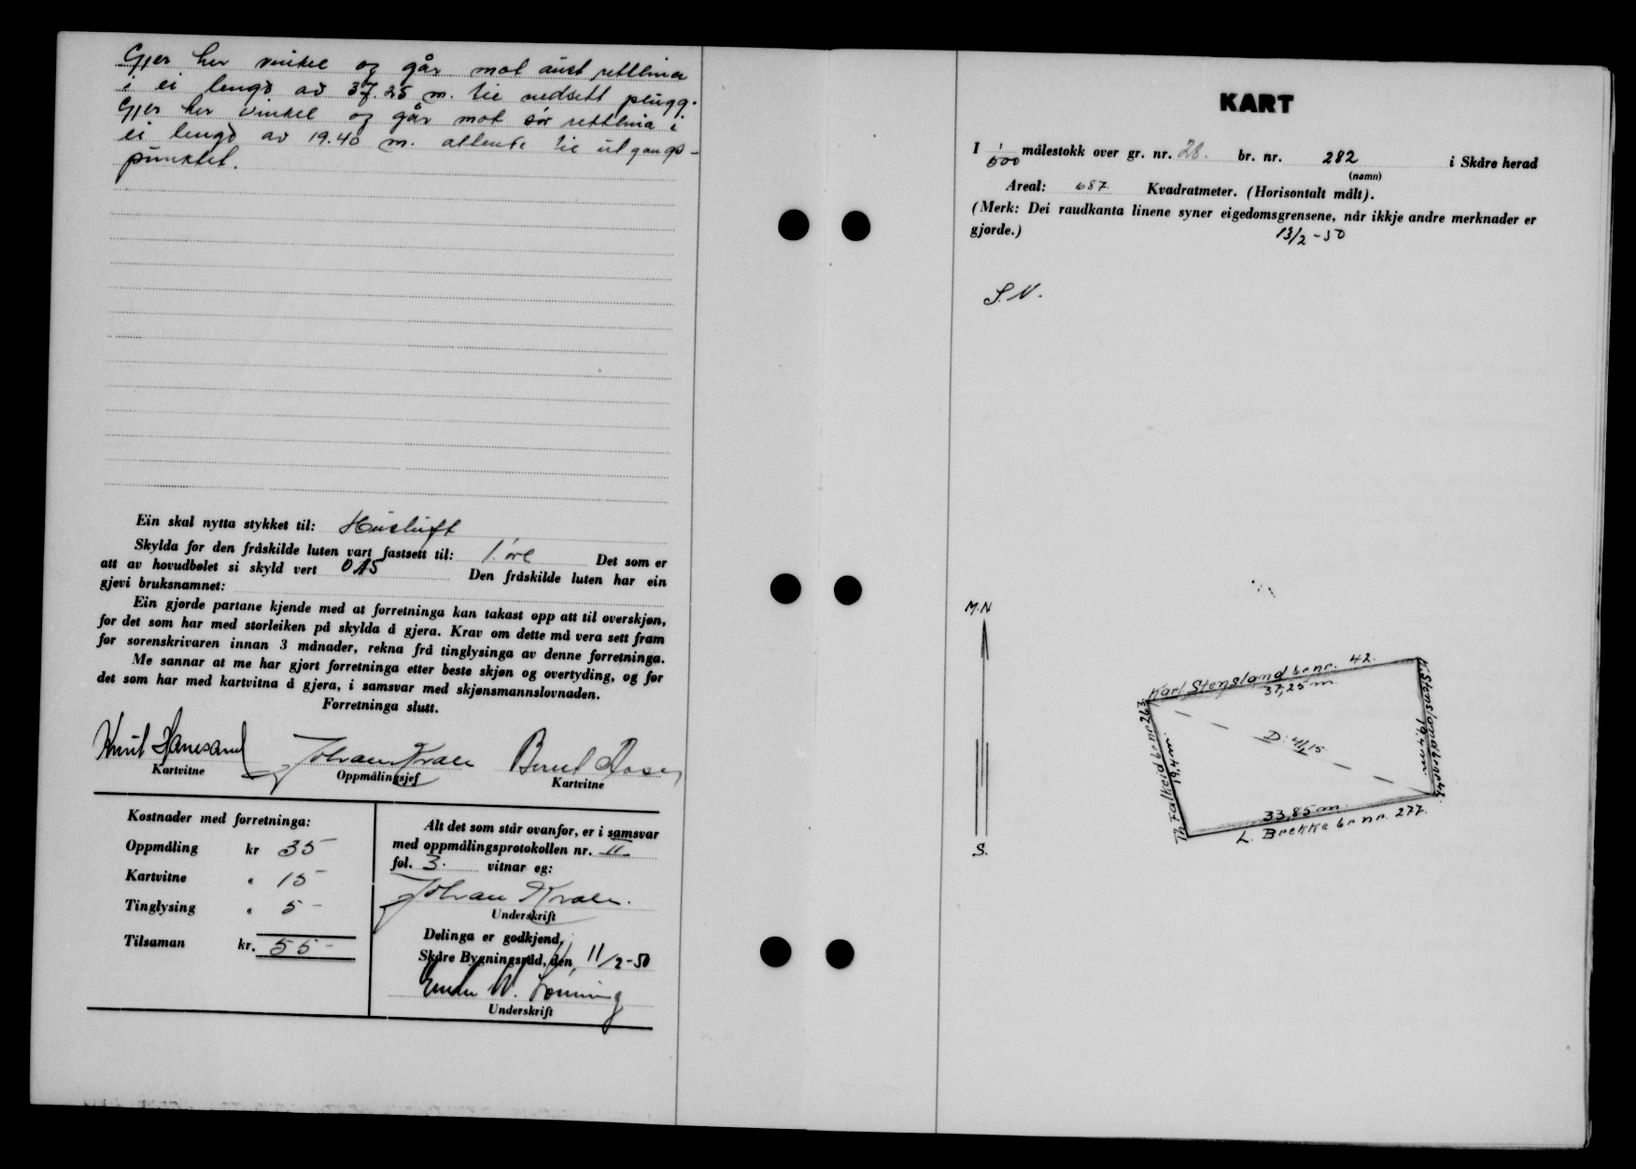 Gjer her vinkel og går mot aust rettlina
i ei lengd av 37.25 m. til nedsett plugg.
Gjer her vinkel og går mot sør rettlina i
ei lengd av 19.40 m. attende til utgangs-
punktet.
Ein skal nytta stykket til: Hustuft
Skylda for den fråskilde luten vart fastsett til: 1 øre Det som er
att av hovudbølet si skyld vert 0.15 Den fråskilde luten har ein
gjevi bruksnamnet:
Ein gjorde partane kjende med at forretninga kan takast opp att til overskjøn,
for det som har med storleiken på skylda å gjera. Krav om dette må vera sett fram
for sorenskrivaren innan 3 månader, rekna frå tinglysinga av denne forretninga.
Me sannar at me har gjort forretninga etter beste skjøn og overtyding, og for
det som har med kartvitna å gjera, i samsvar med skjønsmannslovnaden.
Forretninga slutt.
Knut Hanesand Johan Kvale Bernt
Kartvitne Oppmålingsjef Kartvitne
Kostnader med forretninga:
Oppmåling kr 35-
Kartvitne " 15-
Tinglysing " 5-
Tilsaman kr. 55-
Alt det som står ovanfor, er i samsvar
med oppmålingsprotokollen nr. II
fol. 3. vitnar eg:
Johan Kvale.
Underskrift
Delinga er godkjend,
Skåre Bygningsråd, den 11/2-50
W.
Underskrift
KART
I 1/500 målestokk over gr. nr. 28. br. nr. 282 i Skåre herad
(namn)
Areal: 687 Kvadratmeter. (Horisontalt målt).
(Merk: Dei raudkanta linene syner eigedomsgrensene, når ikkje andre merknader er
gjorde.)
13/2-50
S.N.
M.N
S.
Karl Stensland br.nr. 42.
37,25 m.
K. Stensland br.nr. 42.
19,4 m.
Th. Falkeid br.nr. 263
19,4 m.
D: 41,15
33,85 m.
L. Brekke br.nr. 277.